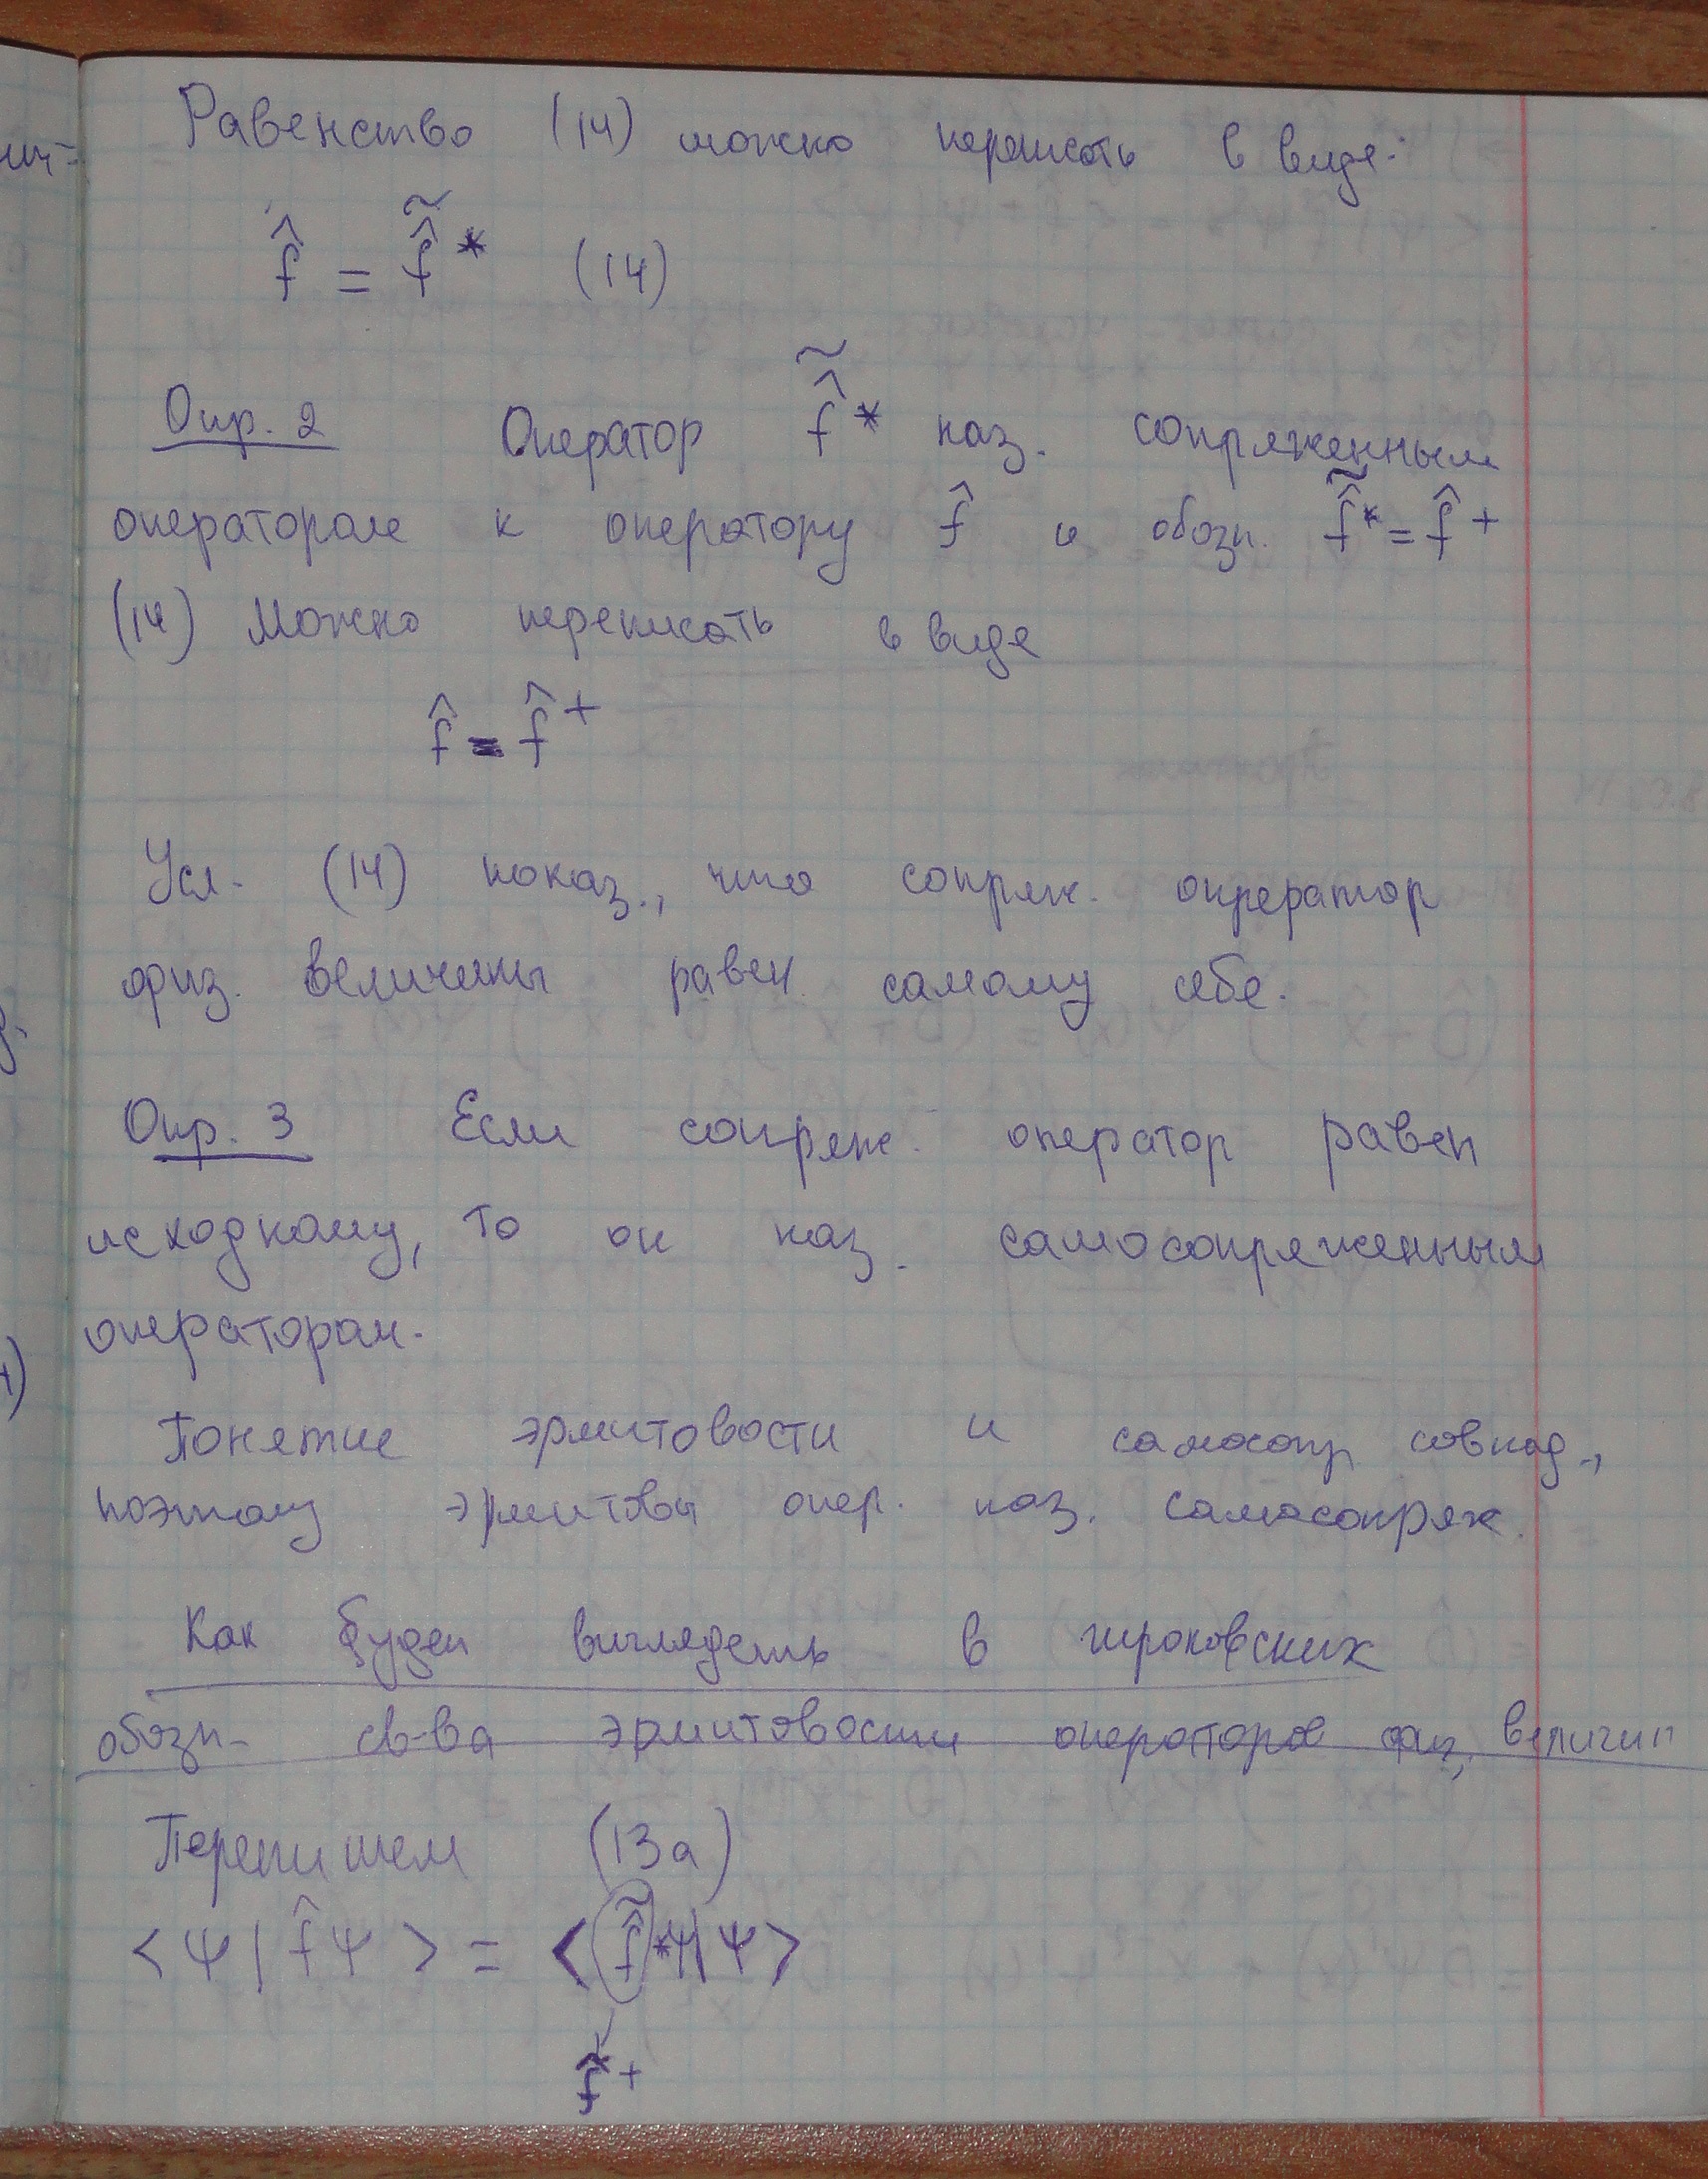 Равенство (14) можно переписать в виде:
f̂ = f̂̃* (14)
Опр. 2 Оператор f̂̃* наз. сопряженным
оператором к оператору f̂ и обозн. f̂̃* = f̂⁺
(14) Можно переписать в виде
f̂ = f̂⁺
Усл. (14) показ., что сопряж. опрератор
физ. величины равен самому себе.
Опр. 3 Если сопряж. оператор равен
исходному, то он наз. самосопряженным
оператором.
Понятие эрмитовости и самосопр. совпад.,
поэтому эрмитовы опер. наз. самосопряж.
Как будет выглядеть в дираковских
обозн. св-ва эрмитовости операторов физ. величин
Перепишем (13а)
<Ψ|f̂Ψ> = <f̂̃*Ψ|Ψ>
f̂⁺